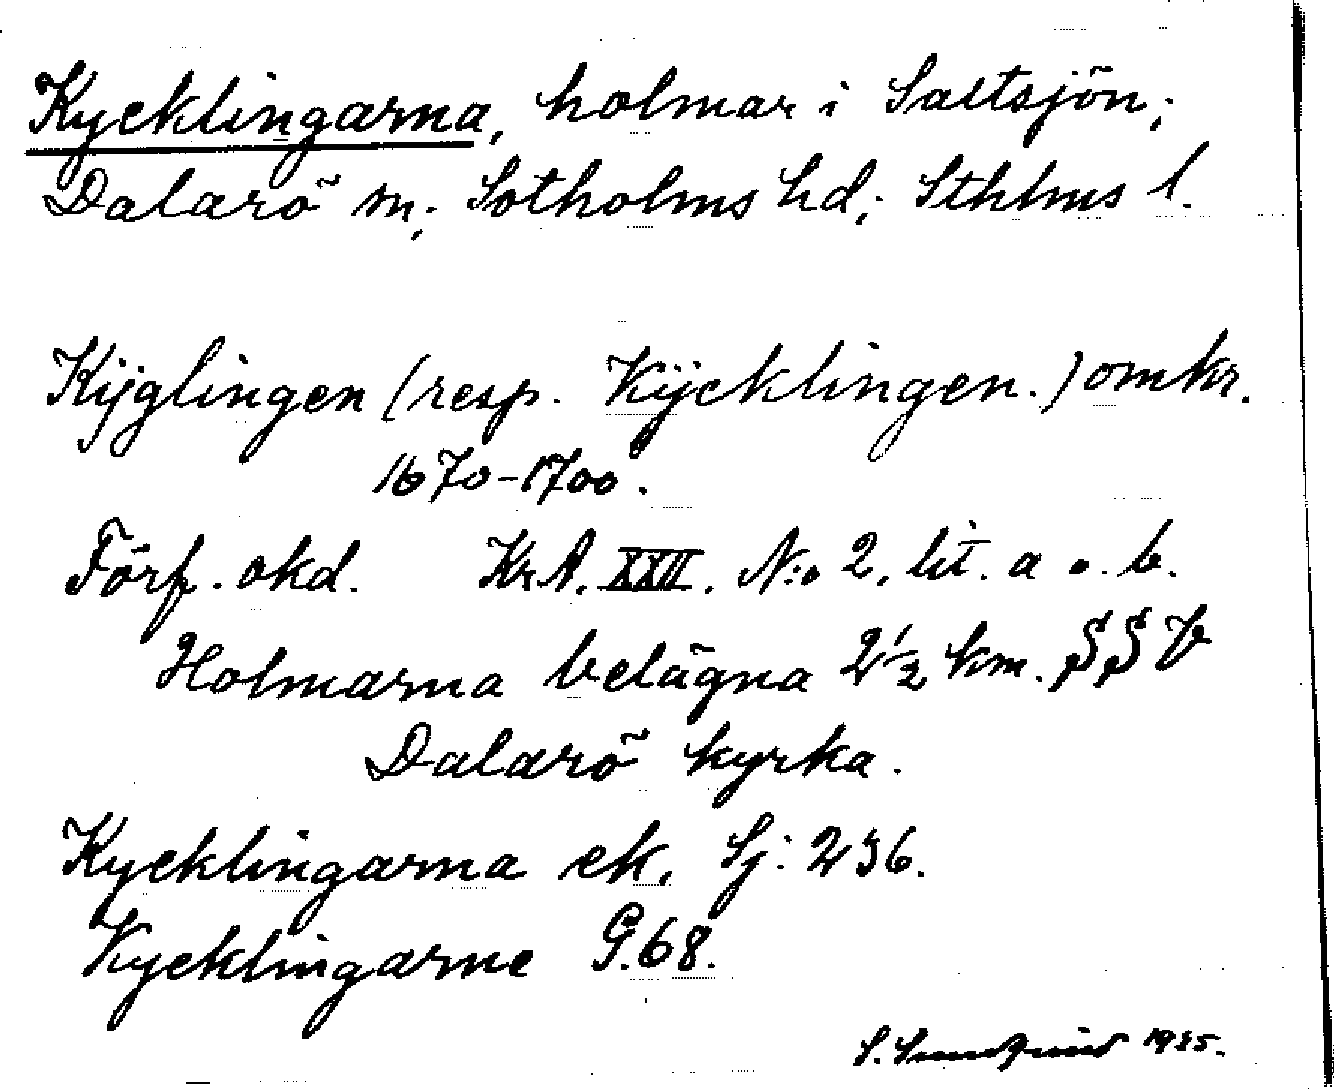 Kycklingarna, holmar i Saltsjön;
Dalarö sn; Sotholms hd; Sthlms l.
Kijglingen (resp. Kÿcklingen.) omkr.
1670-1700.
Förf. okd. Kr.A. XXII. N:o 2. lit. a o. b.
Holmarna belägna 2 1/2 km. SSV
Dalarö kyrka.
Kycklingarna ek. Sj: 236.
Kycklingarne G.68.
S. 1935.